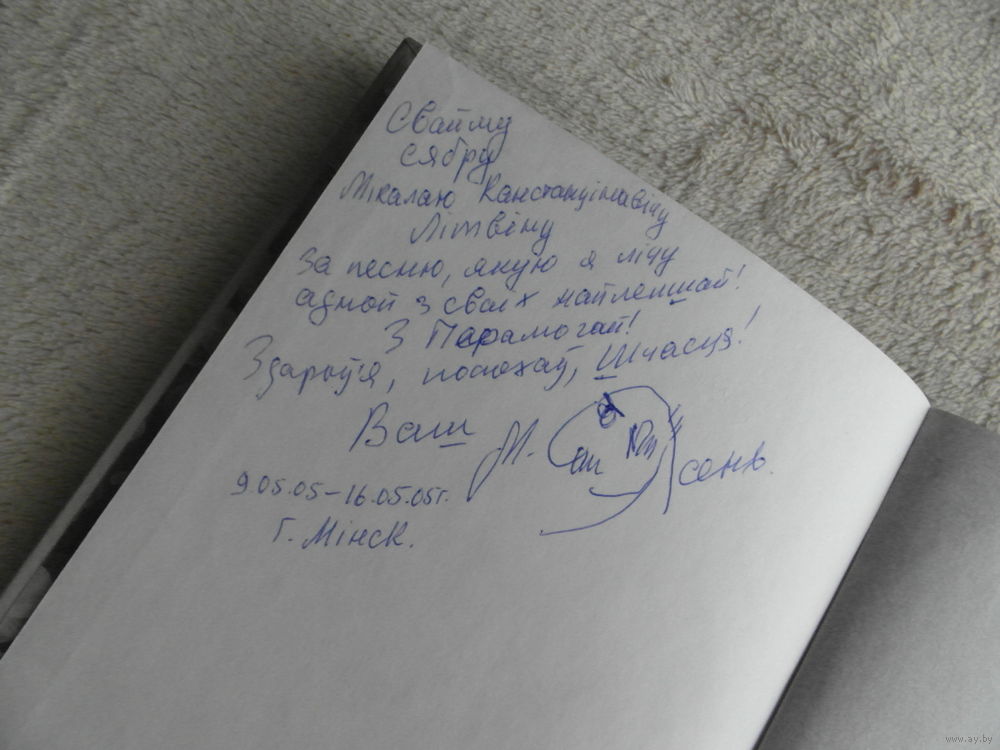 Свайму
сябру
Мікалаю Канстанцінавічу
Літвіну
За песню, якую я лічу
адной з сваіх найлепшай!
З Перамогай!
Здароўя, поспехаў, Шчасця!
Ваш М.
9.05.05-16.05.05г.
Г. Мінск.
www.ay.by